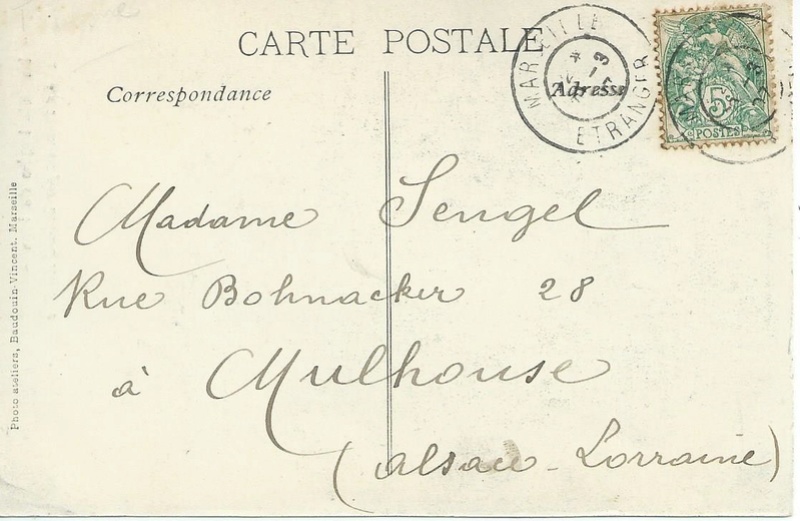 CARTE POSTALE
Correspondance
Adresse
MARSEILLE
ETRANGER
5c
POSTES
Madame Sengel
Rue Bohnacker 28
à Mulhouse
(Alsace-Lorraine)
Photo ateliers, Baudouin-Vincent. Marseille